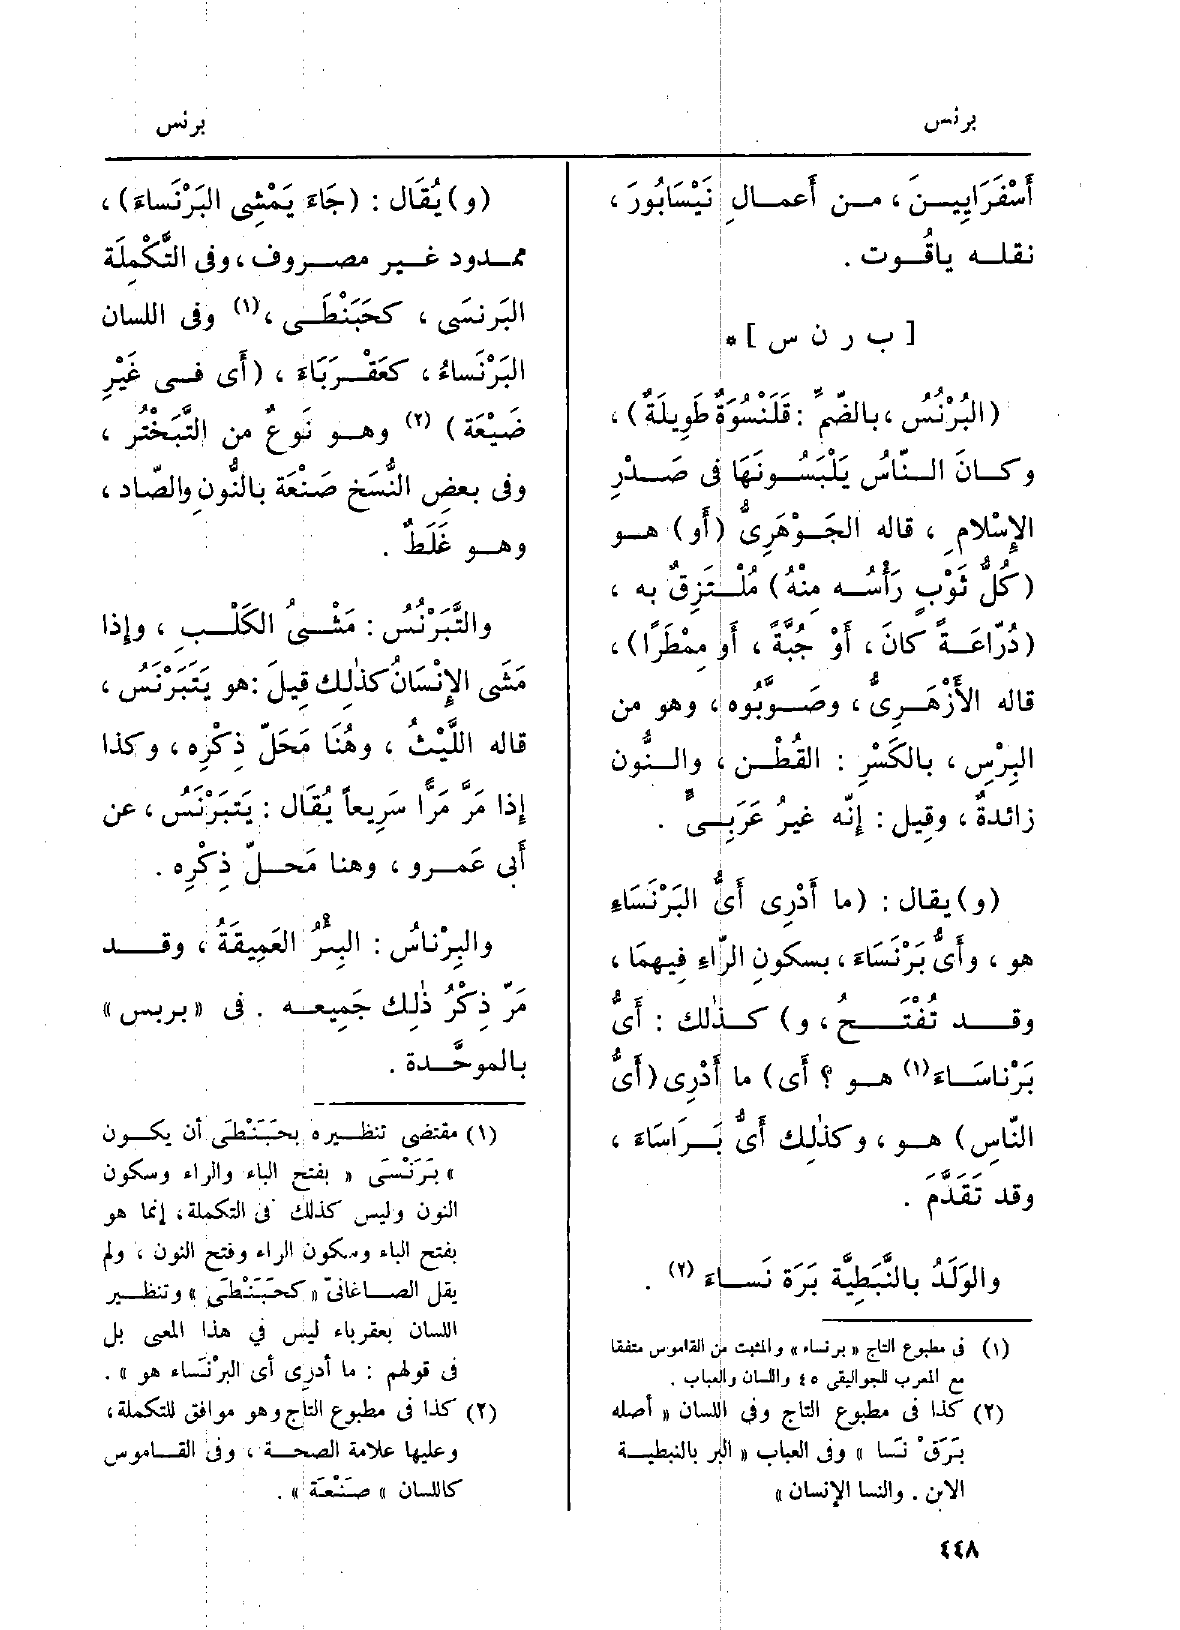 برنس
برنس
أَسْفَرَايِيـنَ ، مـن أَعمـالِ نَيْسَابُورَ ،
نقلـه ياقُـوت .
[ ب ر ن س ] *
(البُرْنُس ، بالضّمّ : قَلَنْسُوَةٌ طَوِيلَةٌ) ،
وكـانَ النّـاسُ يَلْبَسُـونَهَا فى صَـدْرِ
الإِسْلامِ ، قاله الجَـوْهَرِىُّ (أَو) هـو
(كُلُّ ثَوْبٍ رَأْسُـه مِنْهُ) مُلْـتَزِقٌ به ،
(دُرّاعَـةً كانَ ، أَوْ جُبَّةً ، أَو مِمْطَرًا) ،
قاله الأَزْهَـرِىُّ ، وصَـوَّبُوه ، وهو من
البِرْسِ ، بالكَسْرِ : القُطْـنِ ، والـنُّون
زائدةٌ ، وقِيل : إِنّه غيرُ عَرَبِـىٍّ .
(و) يقال : (ما أَدْرِى أَىُّ البَرْنَسَاءِ
هو ، وأَىُّ بَرْنَسَاءَ ، بسكونِ الرّاءِ فِيهمَا ،
وقـد تُفْتَـحُ ، و) كـذٰلك : أَىُّ
بَرْناسَـاءَ(١) هـو ؟ أَى) ما أَدْرِى (أَىُّ
النّاسِ) هـو ، وكذٰلِك أَىُّ بَـرَاسَاءَ ،
وقد تَقَدَّمَ .
والوَلَدُ بالنَّبَطِيَّة بَرَهْ نَسـاءَ (٢) .
(١) فى مطبوع التاج « برنساء » والمثبت من القاموس متفقا
مع المعرب للجواليقى ٤٥ واللسان والعباب .
(٢) كذا فى مطبوع التاج وفى اللسان « أصله
بَرَقْ نَسا » وفى العباب « البر بالنبطيـة
الابن . والنسا الإنسان »
(و) يُقَال : (جَاءَ يَمْشِى البَرْنَساءَ) ،
ممـدود غـير مصـروف ، وفى التَّكْمِلَة
البَرنسَى ، كحَبَنْطَـى ،(١) وفى اللسان
البَرْنَساءُ ، كعَقْـرَبَاءَ ، (أَى فـى غَيْرِ
ضَيْعَة) (٢) وهـو نَوعٌ من التَّبَخْتُر ،
وفى بعضِ النُّسَخِ صَنْعَة بالنُّونِ والصّاد ،
وهـو غَلَطٌ .
والتَّبَرْنُسُ : مَشْـىُ الكَلْـبِ ، وإِذا
مَشَى الإِنْسَانُ كذٰلِك قِيلَ : هو يَتَبَرْنَسُ ،
قاله اللَّيْثُ ، وهُنَا مَحَلّ ذِكْرِه ، وكذا
إِذا مَرَّ مَرًّا سَرِيعاً يُقَال : يَتَبَرْنَسُ ، عن
أَبى عَمـرو ، وهنا مَحـلّ ذِكْرِه .
والبِرْناسُ : البِئْرُ العَمِيقَةُ ، وقـد
مَرّ ذِكْرُ ذٰلِك جَمِيعـه . فى « بربس »
بالموحَّـدة .
(١) مقتضى تنظـيره بحَبَنْطَى أن يكـون
« بَرَنْسَى » بفتح الباء والراء وسكون
النون وليس كذلك فى التكملة ، إنما هو
بفتح الباء وسكون الراء وفتح النون ، ولم
يقل الصـاغانىّ « كحَبَنْطَى » وتنظـير
اللسان بعقرباء ليس في هذا المعى بل
فى قولهم : ما أدرى أى البرْنَساء هو » .
(٢) كذا فى مطبوع التاج وهو موافق للتكملة ،
وعليها علامة الصحـة ، وفى القـاموس
كاللسان « صَنْعَة » .
٤٤٨